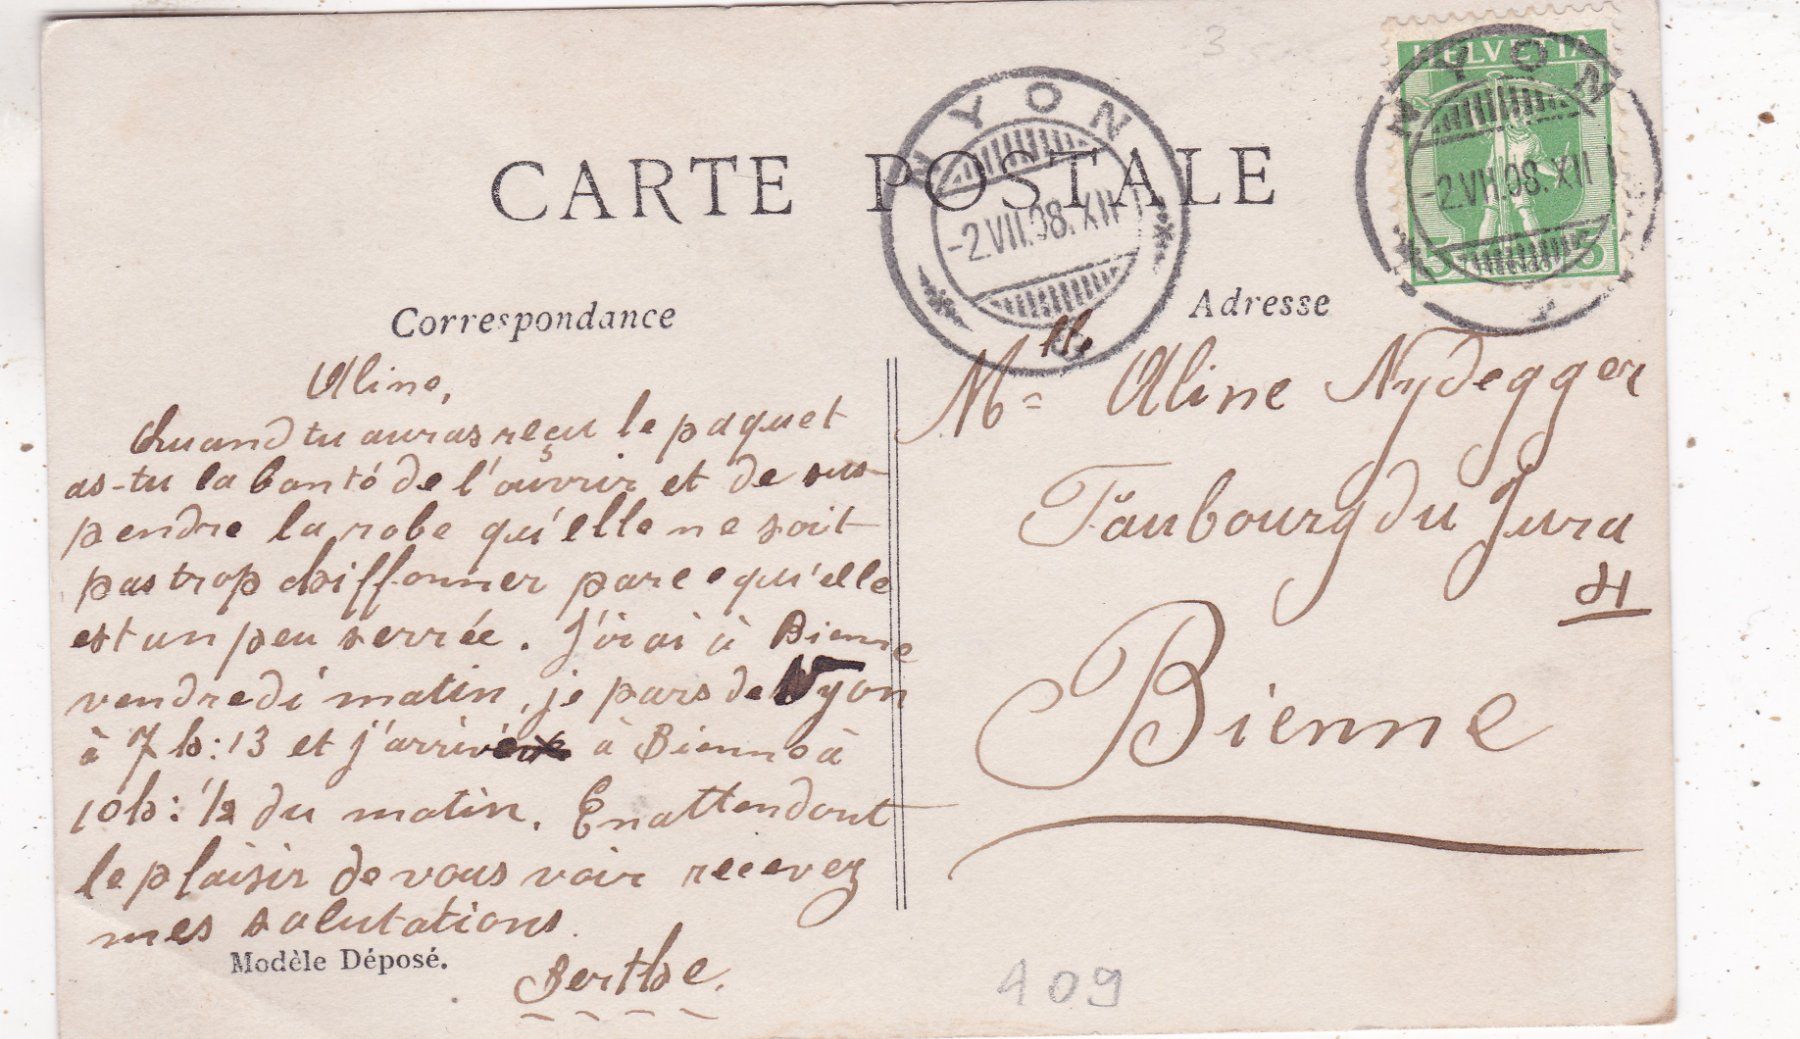 3
HELVETIA
5 5
NYON
-2.VII.08.XII
NYON
-2.VII.08.XII
CARTE POSTALE
Correspondance
Aline,
Quand tu auras reçu le paquet
as-tu la bonté de l'ouvrir et de sus-
pendre la robe qu'elle ne soit
pas trop chiffonner parce qu'elle
est un peu serrée. J'irai à Bienne
vendredi matin, je pars de Nyon
à 7 h: 13 et j'arrive à Bienne à
10h: 1/2 du matin. En attendant
le plaisir de vous voir recevez
mes salutations.
Berthe.
Modèle Déposé.
Adresse
Mlle Aline Nydegger
Faubourg du Jura
Bienne
409